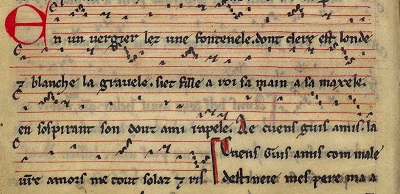 En un vergier lez une fontenele. dont clere est londe
⁊ blanche la grauele. siet fille a roi sa main a sa maxele.
en sospirant son douz ami rapele. Ae cuens guis amis. la
ur̃e amors me tout solaz ⁊ ris Cuens Guis amis com male
destinee mes pere ma a